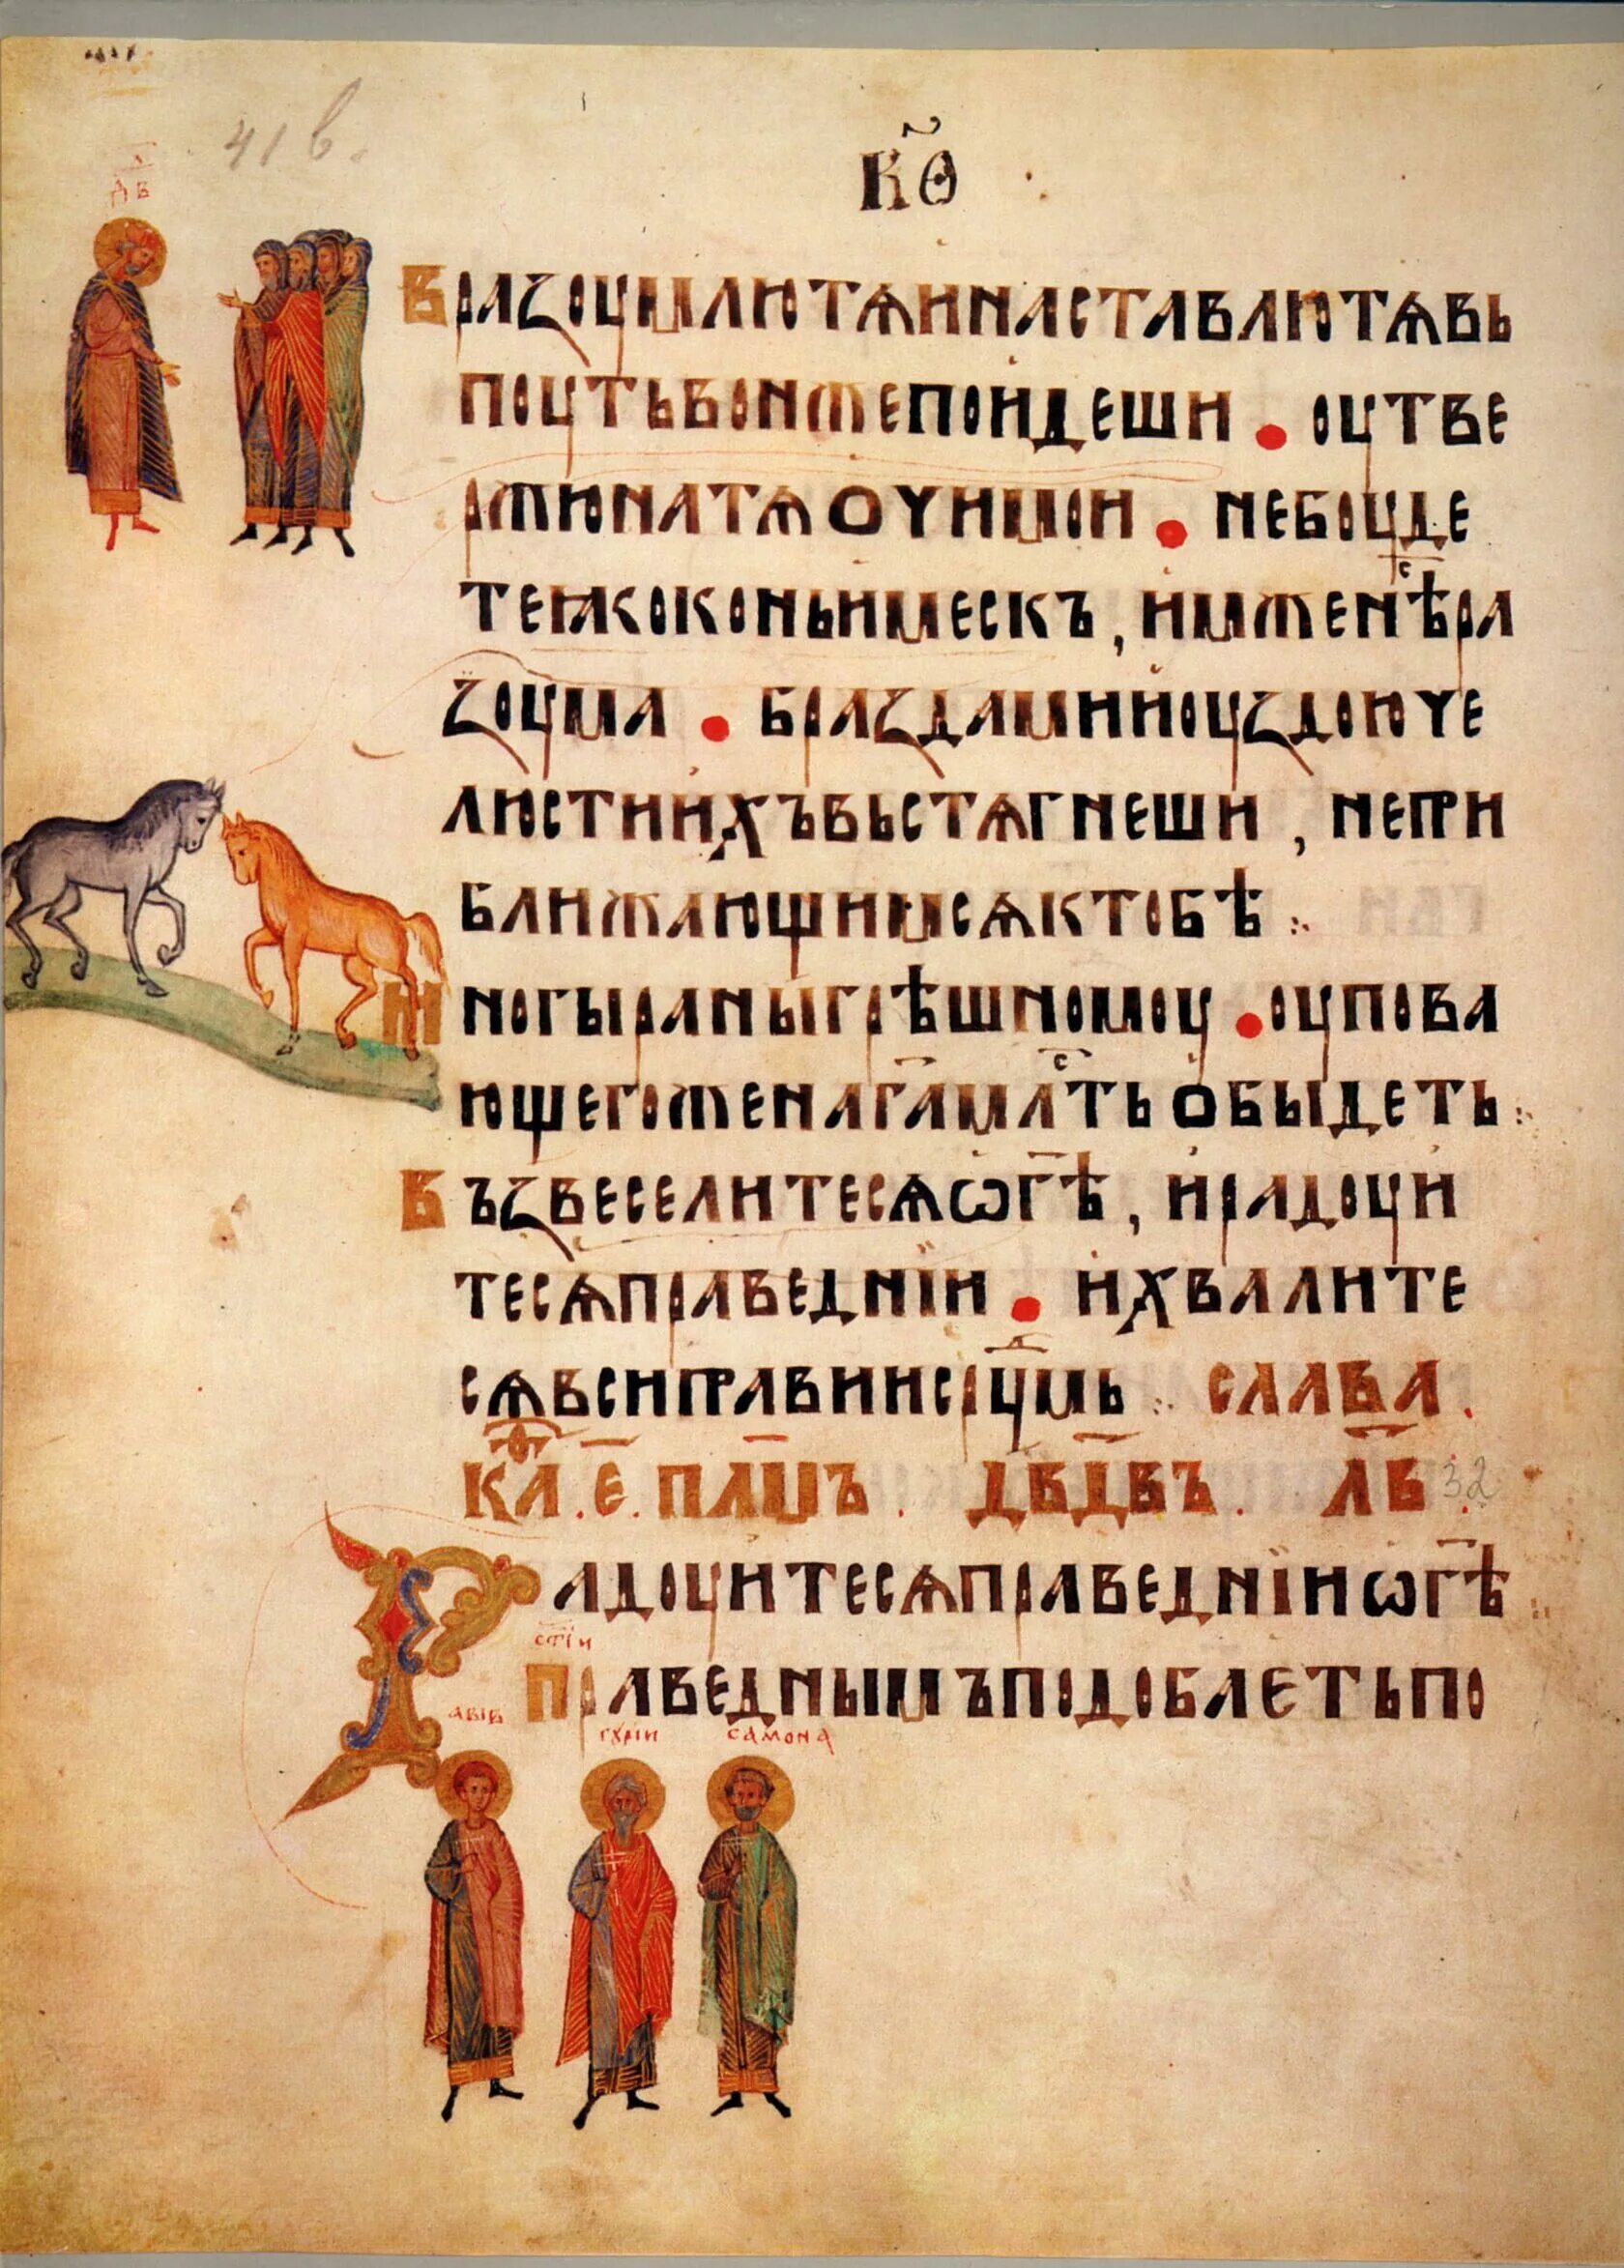 41 в.
к҃ѳ
дв҃д
Вразоумлютѧинаставлютѧвь
поутьвоньжепоидеши • оутве
ржюнатѧочимои • небоуде
теꙗкоконьимескъ, имженѣ͏ⷭ҇ра
ꙁоума • браздамииоуꙁдоюче
люстиихъвьстѧгнеши, непри
ближающимсѧктобѣ ⁖
Многыраныгрѣшномоу • оупова
ющегоженаг҃амлⷭ҇тьобыдеть ⁖
Въꙁвеселитесѧѡг҃ѣ, ирадоуи
тесѧправеднїи • ихвалите
сѧвсиправиисрⷣ҇умь ⁖ слава.
каⷴ. е҃. пл҃мъ. дв҃дв҃ъ. л҃в. 32
Радоуитесѧправеднїиѡг҃ѣ ⁖
ст҃їи
Праведнымъподобаєтьпо
авів гꙋрии самона